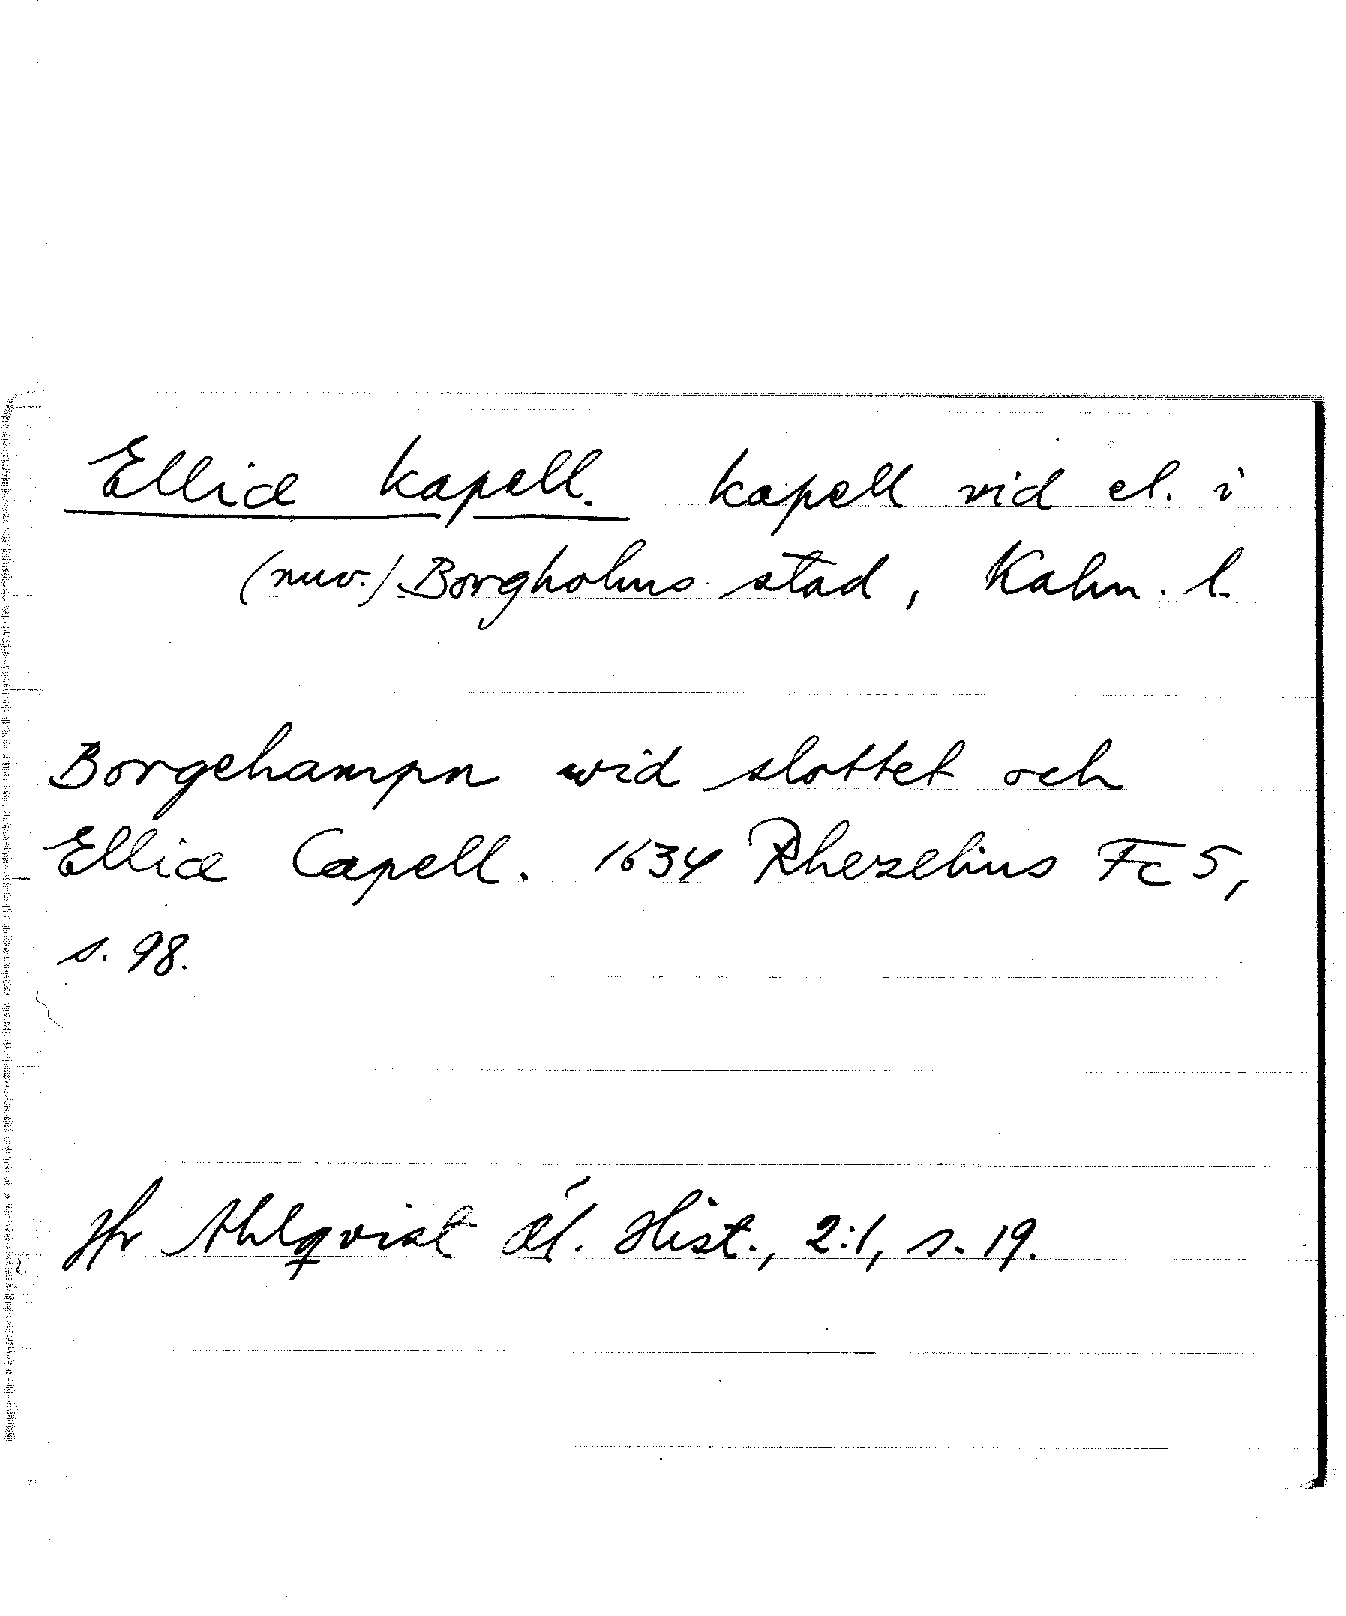 Elliæ kapell. kapell vid el. i
(nuv.) Borgholms stad, Kalm. l.
Borgehampn wid slottet och
Elliæ Capell. 1634 Rhezelius Fc 5,
s. 98.
Jfr Ahlqvist Öl. Hist., 2:1, s. 19.